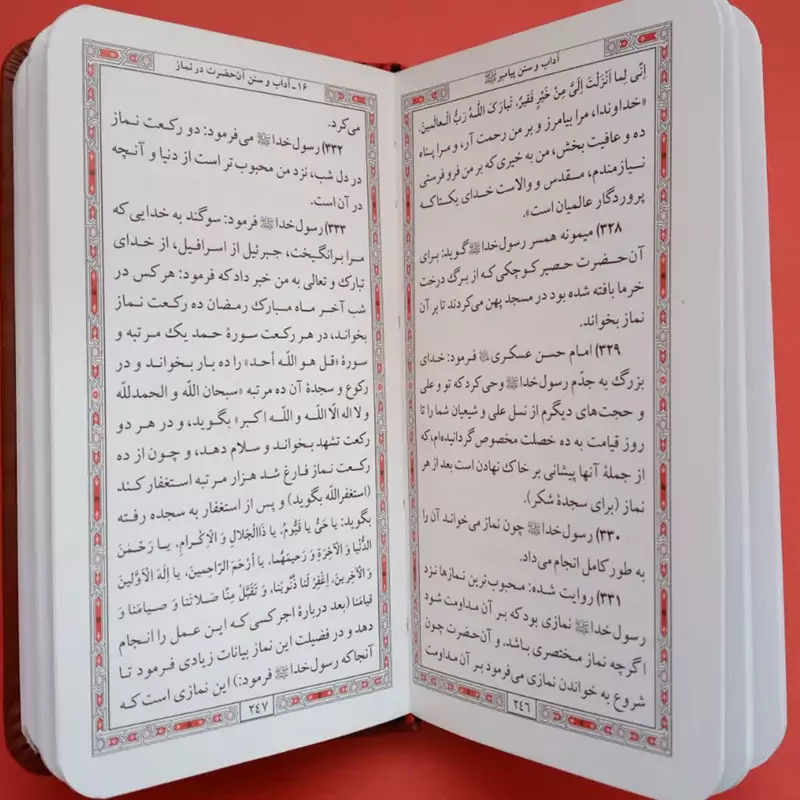 آداب و سنن پیامبر ﷺ
اِنّی لِما اَنْزَلْتَ اِلَیَّ مِنْ خَیْرٍ فَقیرٌ، تَبارَکَ اللّٰهُ رَبُّ الْعالَمینَ.
«خداوندا، مرا بیامرز و بر من رحمت آر، و مرا پناه
ده و عافیت بخش، من به خیری که بر من فرو فرستی
نیازمندم، مقدس و والاست خدای یکتا که
پروردگار عالمیان است».
۳۲۸) میمونه همسر رسول‌خدا ﷺ گوید: برای
آن‌حضرت حصیر کوچکی که از برگ درخت
خرما بافته شده بود در مسجد پهن می‌کردند تا بر آن
نماز بخواند.
۳۲۹) امام حسن عسکری فرمود: خدای
بزرگ به جدّم رسول‌خدا ﷺ وحی کرد که تو و علی
و حجت‌های دیگرم از نسل علی و شیعیان شما را تا
روز قیامت به ده خصلت مخصوص گردانیده‌ام، که
از جملهٔ آنها پیشانی بر خاک نهادن است بعد از هر
نماز (برای سجدهٔ شکر).
۳۳۰) رسول‌خدا ﷺ چون نماز می‌خواند آن را
به طور کامل انجام می‌داد.
۳۳۱) روایت شده: محبوب‌ترین نمازها نزد
رسول‌خدا ﷺ نمازی بود که بر آن مداومت شود
اگرچه نماز مختصری باشد، و آن‌حضرت چون
شروع به خواندن نمازی می‌فرمود بر آن مداومت
۲۴۶
۱۶ـ آداب و سنن آن‌حضرت در نماز
می‌کرد.
۳۳۲) رسول‌خدا ﷺ می‌فرمود: دو رکعت نماز
در دل شب، نزد من محبوب‌تر است از دنیا و آنچه
در آن است.
۳۳۳) رسول‌خدا ﷺ فرمود: سوگند به خدایی که
مرا برانگیخت، جبرئیل از اسرافیل، از خدای
تبارک و تعالی به من خبر داد که فرمود: هر کس در
شب آخر ماه مبارک رمضان ده رکعت نماز
بخواند، در هر رکعت سورهٔ حمد یک مرتبه و
سورهٔ «قل هو اللّه أحد» را ده بار بخواند و در
رکوع و سجدهٔ آن ده مرتبه «سبحان اللّه و الحمدللّه
و لا اله الّا اللّه و اللّه اکبر» بگوید، و در هر دو
رکعت تشهد بخواند و سلام دهد، و چون از ده
رکعت نماز فارغ شد هزار مرتبه استغفار کند
(استغفراللّه بگوید) و پس از استغفار به سجده رفته
بگوید: یا حَیُّ یا قَیُّومُ، یا ذَاالْجَلالِ وَ الْاِکْرامِ، یا رَحْمٰنَ
الدُّنْیا وَ الْآخِرَةِ وَ رَحیمَهُما، یا أَرْحَمَ الرّاحِمینَ، یا إِلٰهَ الْاَوَّلینَ
وَ الْآخِرینَ، اِغْفِرْ لَنا ذُنُوبَنا، وَ تَقَبَّلْ مِنّا صَلاتَنا وَ صِیامَنا وَ
قِیامَنا (بعد دربارهٔ اجر کسی که این عمل را انجام
دهد و در فضیلت این نماز بیانات زیادی فرمود تا
آنجا که رسول‌خدا ﷺ فرمود:) این نمازی است که
۲۴۷